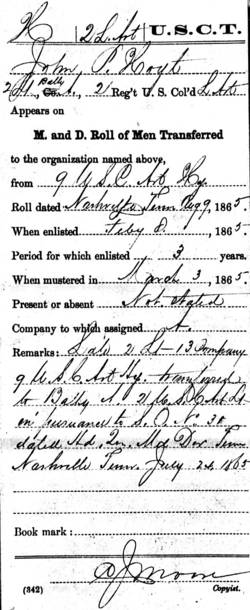 K 2 L. Art U.S.C.T.
John P. Hoyt
Batty
2 Lt., Co. A, 2 Reg't U. S. Col'd L. Art
Appears on
M. and D. Roll of Men Transferred
to the organization named above,
from 9 U S C Art Hy.
Roll dated Nashville Tenn Aug 9, 1865.
When enlisted Feby 8, 1865.
Period for which enlisted 3 years.
When mustered in March 3, 1865.
Present or absent Not Stated
Company to which assigned A.
Remarks: Late 2 Lt Company
9 U.S.C. Art Hy. transferred
to Batty A 2 U.S.C. Art Lt
in pursuance to S. O. No 30
dated Hd. Qr. Mid Div Tenn
Nashville Tenn. July 24 1865
Book mark:
(342) Moore Copyist.